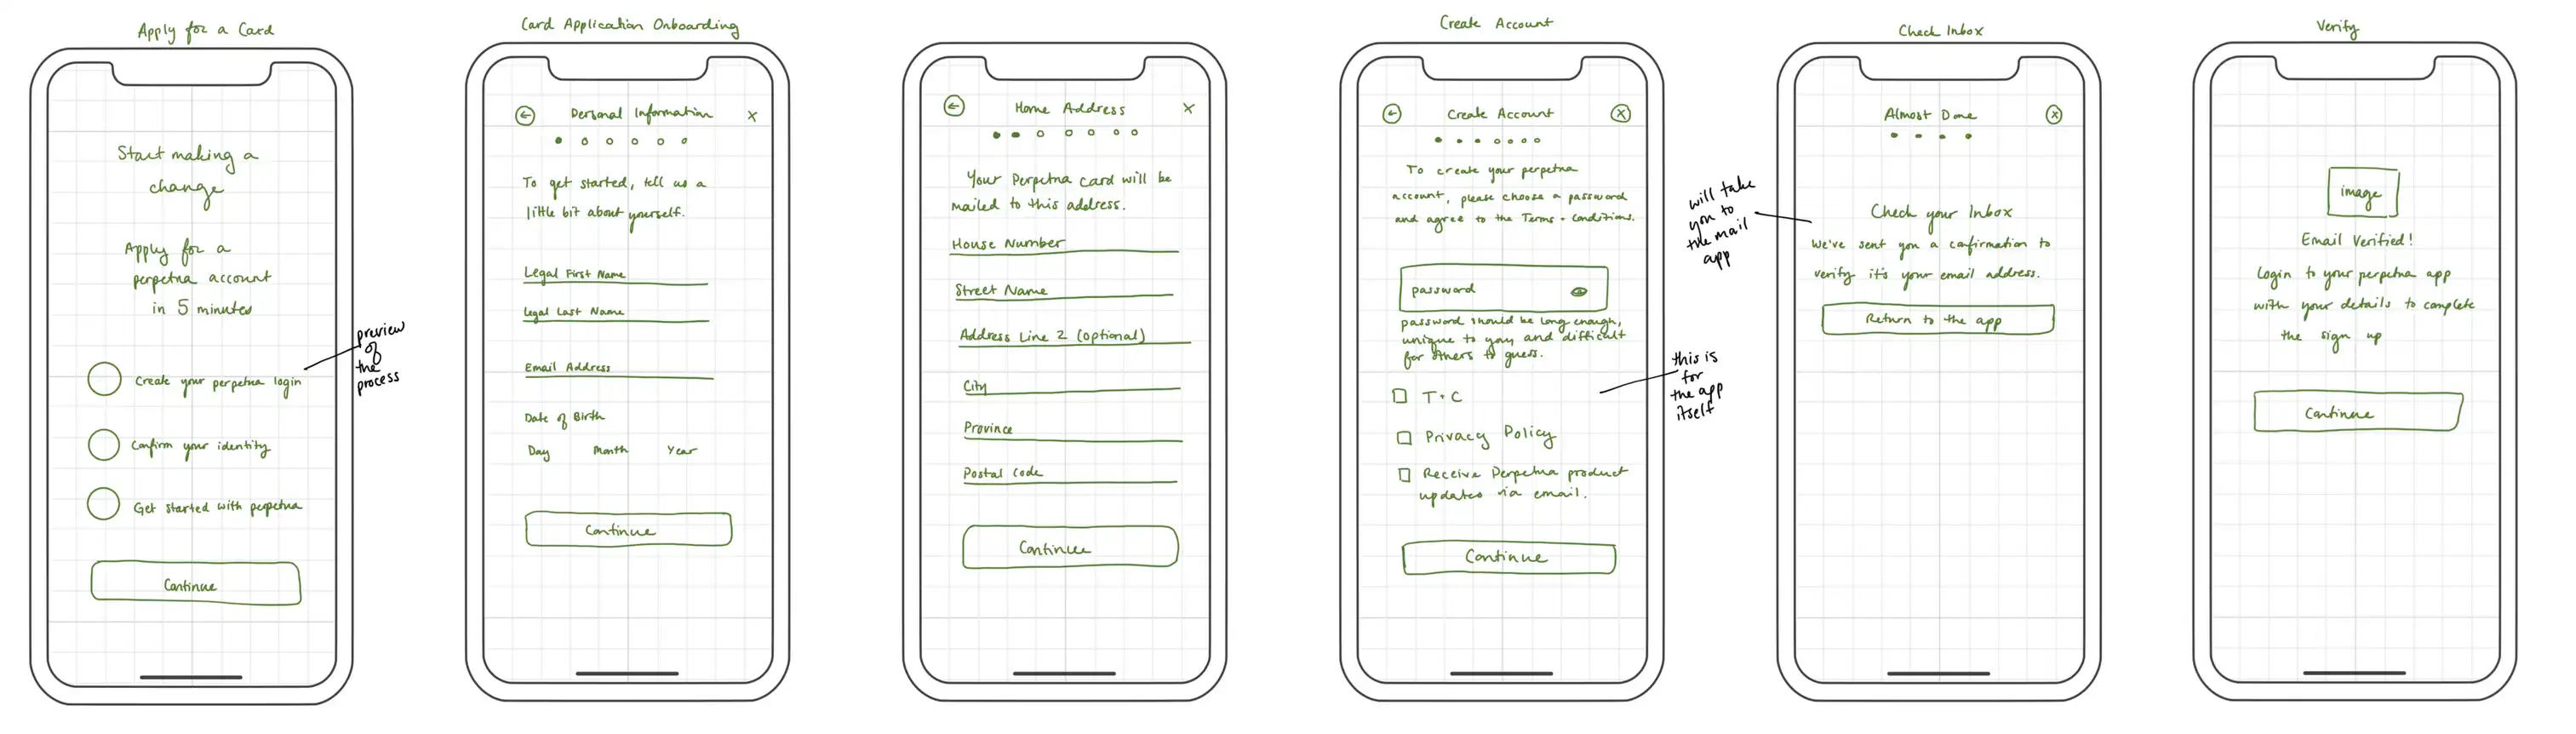 Apply for a Card
Start making a
change
Apply for a
perpetua account
in 5 minutes
Create your perpetua login
Confirm your identity
Get started with perpetua
Continue
preview
of
the
process
Card Application Onboarding
Personal Information
To get started, tell us a
little bit about yourself.
Legal First Name
Legal Last Name
Email Address
Date of Birth
Day Month Year
Continue
Home Address
Your Perpetua card will be
mailed to this address.
House Number
Street Name
Address Line 2 (optional)
City
Province
Postal Code
Continue
Create Account
Create Account
To create your perpetua
account, please choose a password
and agree to the Terms + Conditions.
password
password should be long enough,
unique to you and difficult
for others to guess.
T+C
Privacy Policy
Receive Perpetua product
updates via email.
Continue
this is
for
the app
itself
will take
you to
the mail
app
Check Inbox
Almost Done
Check your Inbox
We've sent you a confirmation to
verify it's your email address.
Return to the app
Verify
image
Email Verified!
Login to your perpetua app
with your details to complete
the sign up
Continue